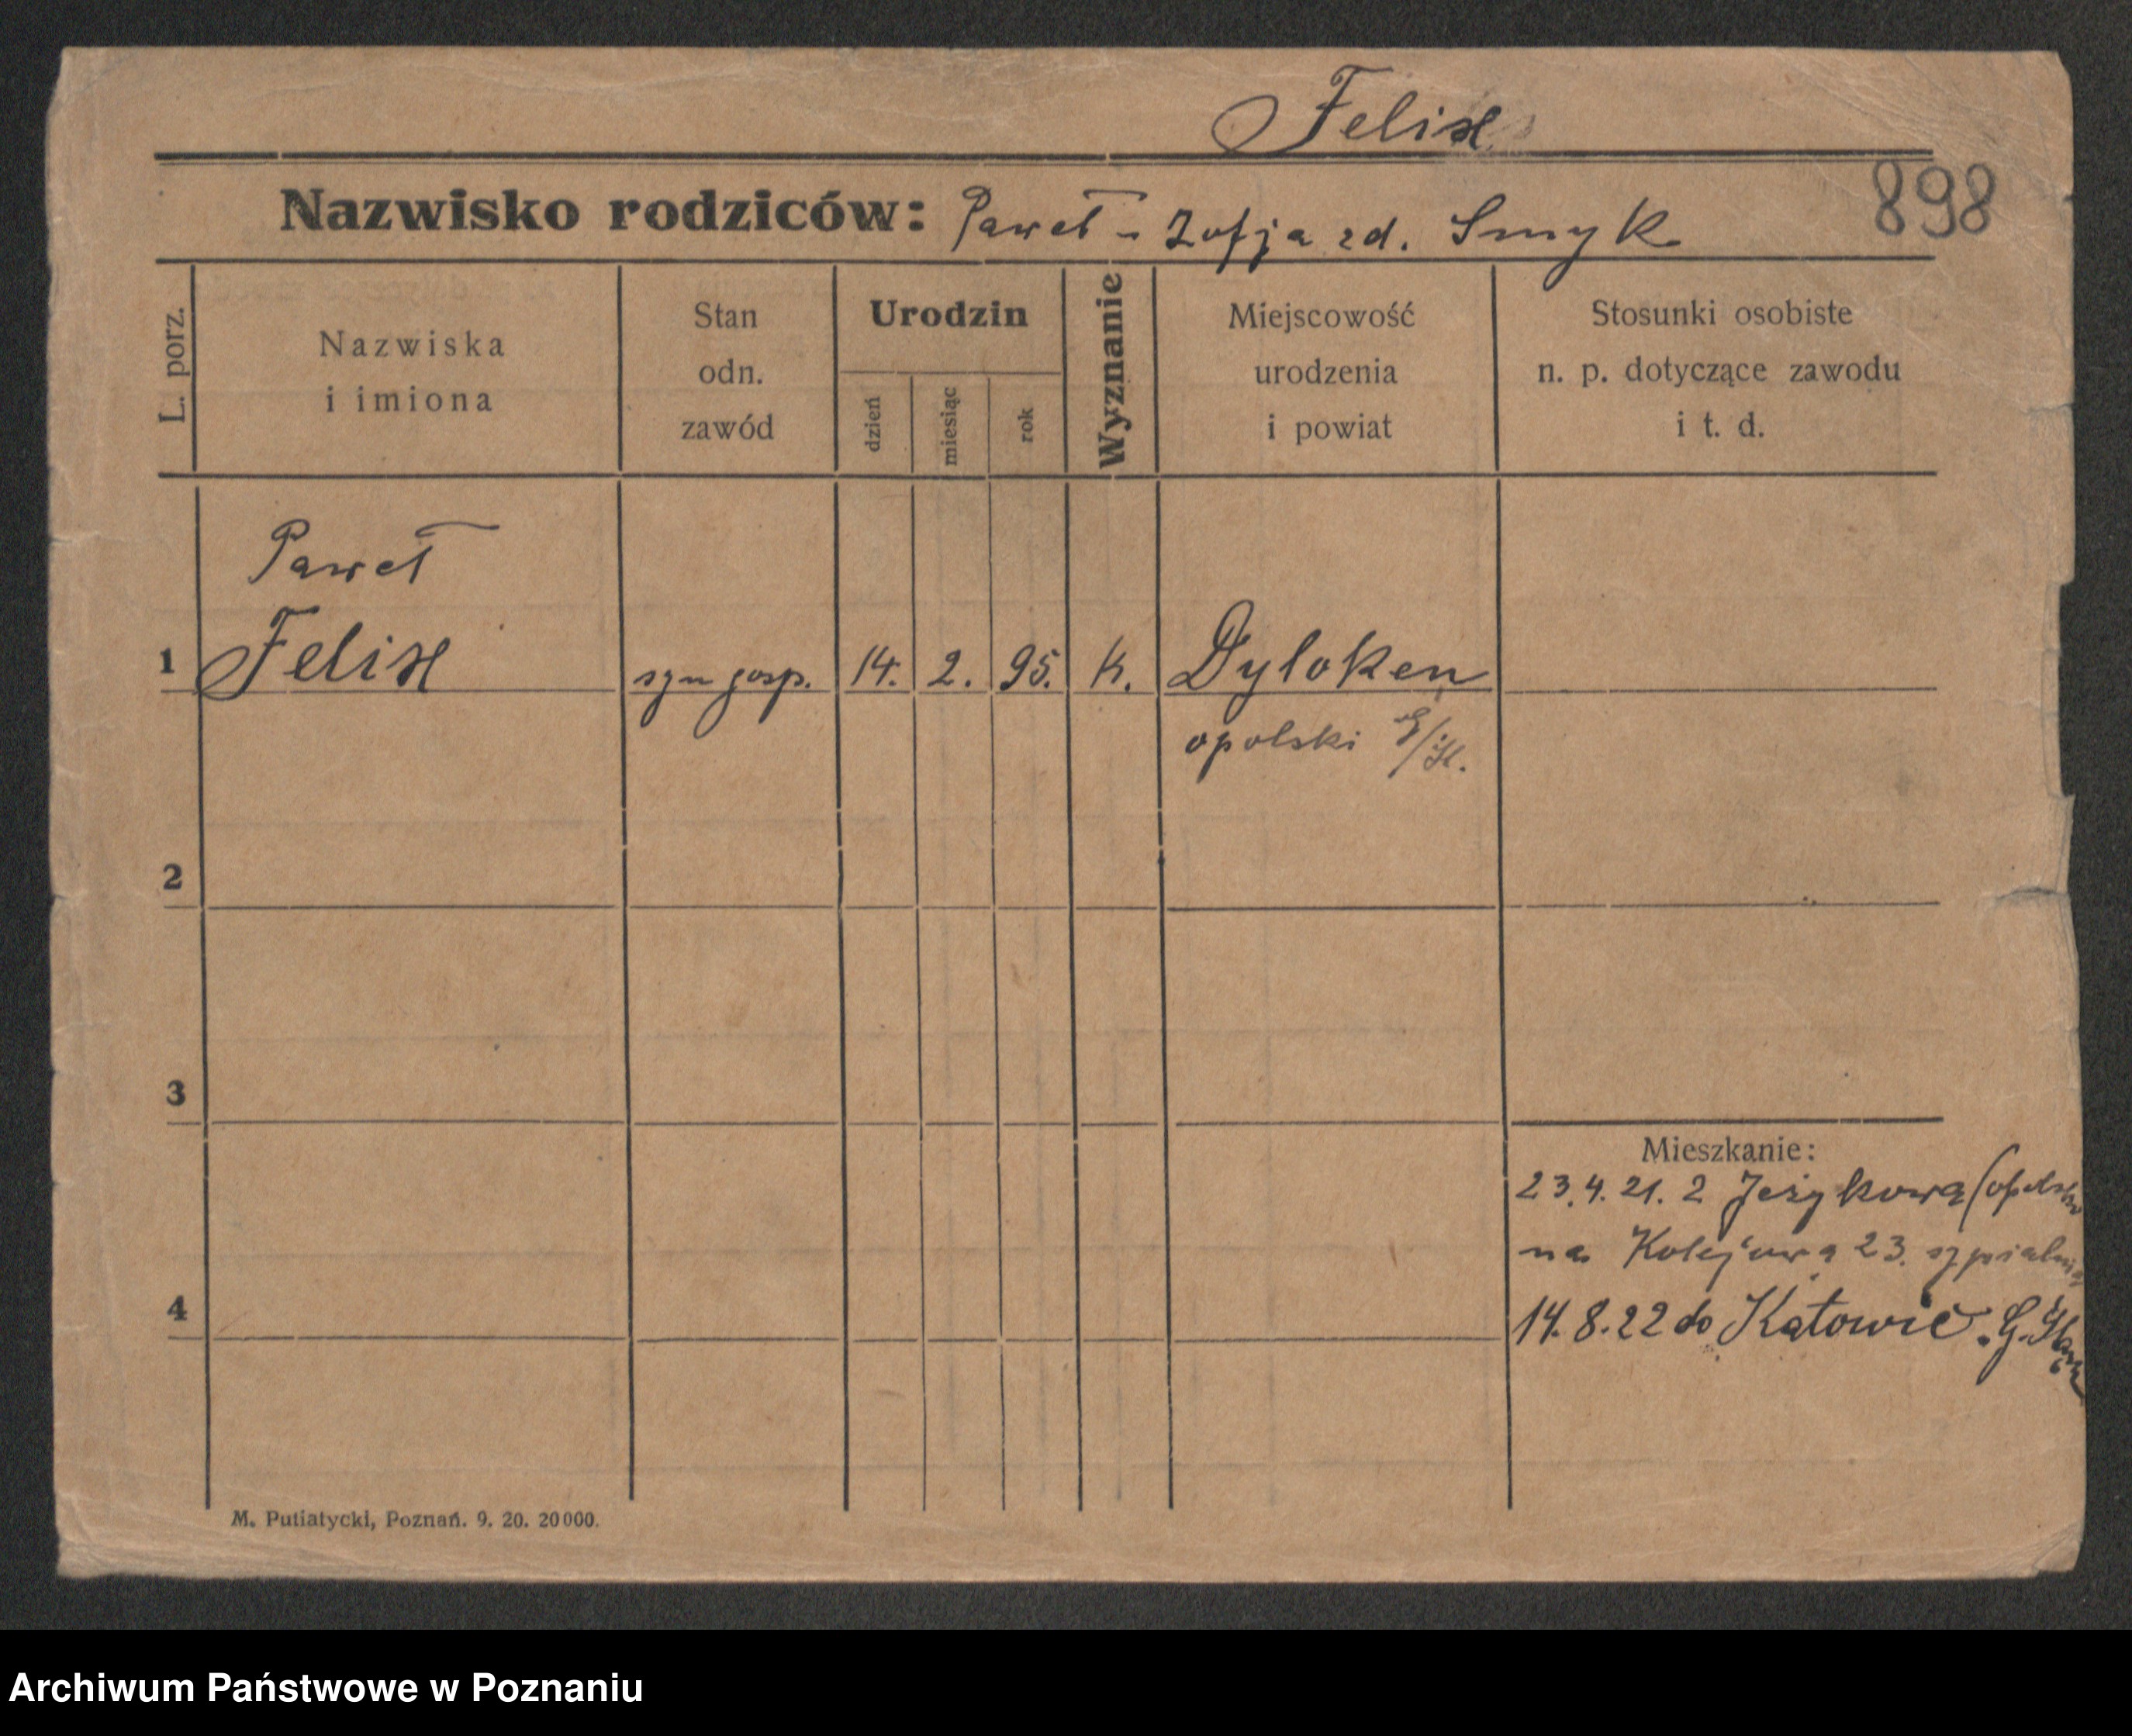 Felix
898
Nazwisko rodziców: Paweł - Zofja zd. Smyk
L. porz.
Nazwiska
i imiona
Stan
odn.
zawód
Urodzin
dzień
miesiąc
rok
Wyznanie
Miejscowość
urodzenia
i powiat
Stosunki osobiste
n. p. dotyczące zawodu
i t. d.
Paweł
1 Felix syn gosp. 14. 2. 95. K. Dyloken
opolski
2
3
Mieszkanie:
23.4.21. 2 Jeżykową
na Kolejową 23.
4
14.8.22 do Katowic. G.
M. Putiatycki, Poznań. 9. 20. 20000.
Archiwum Państwowe w Poznaniu